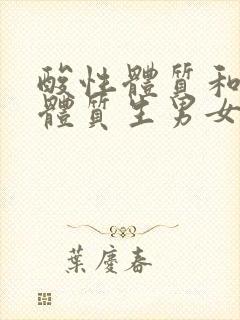 酸性體質和
體質生男女
葉慶春